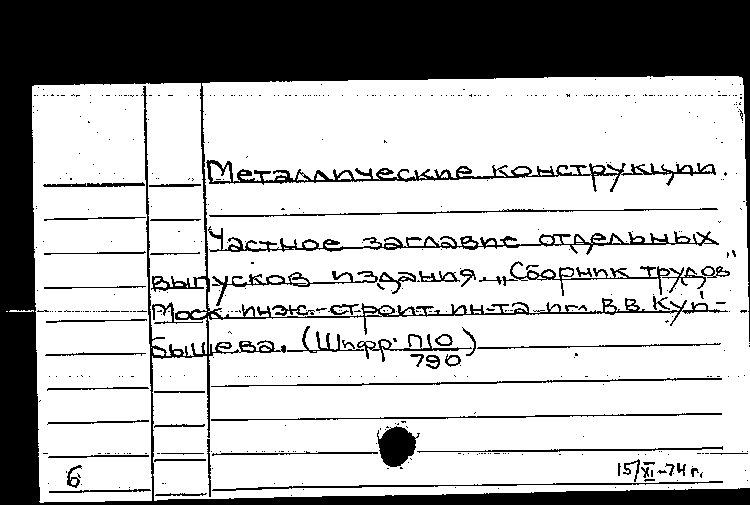 Металлические конструкции.
Частное заглавие отдельных
выпусков издания. „Сборник трудов"
Моск. инж.-строит. ин-та им. В.В. Куй-
бышева. (Шифр: П10/790)
б 15/XI-74 г.